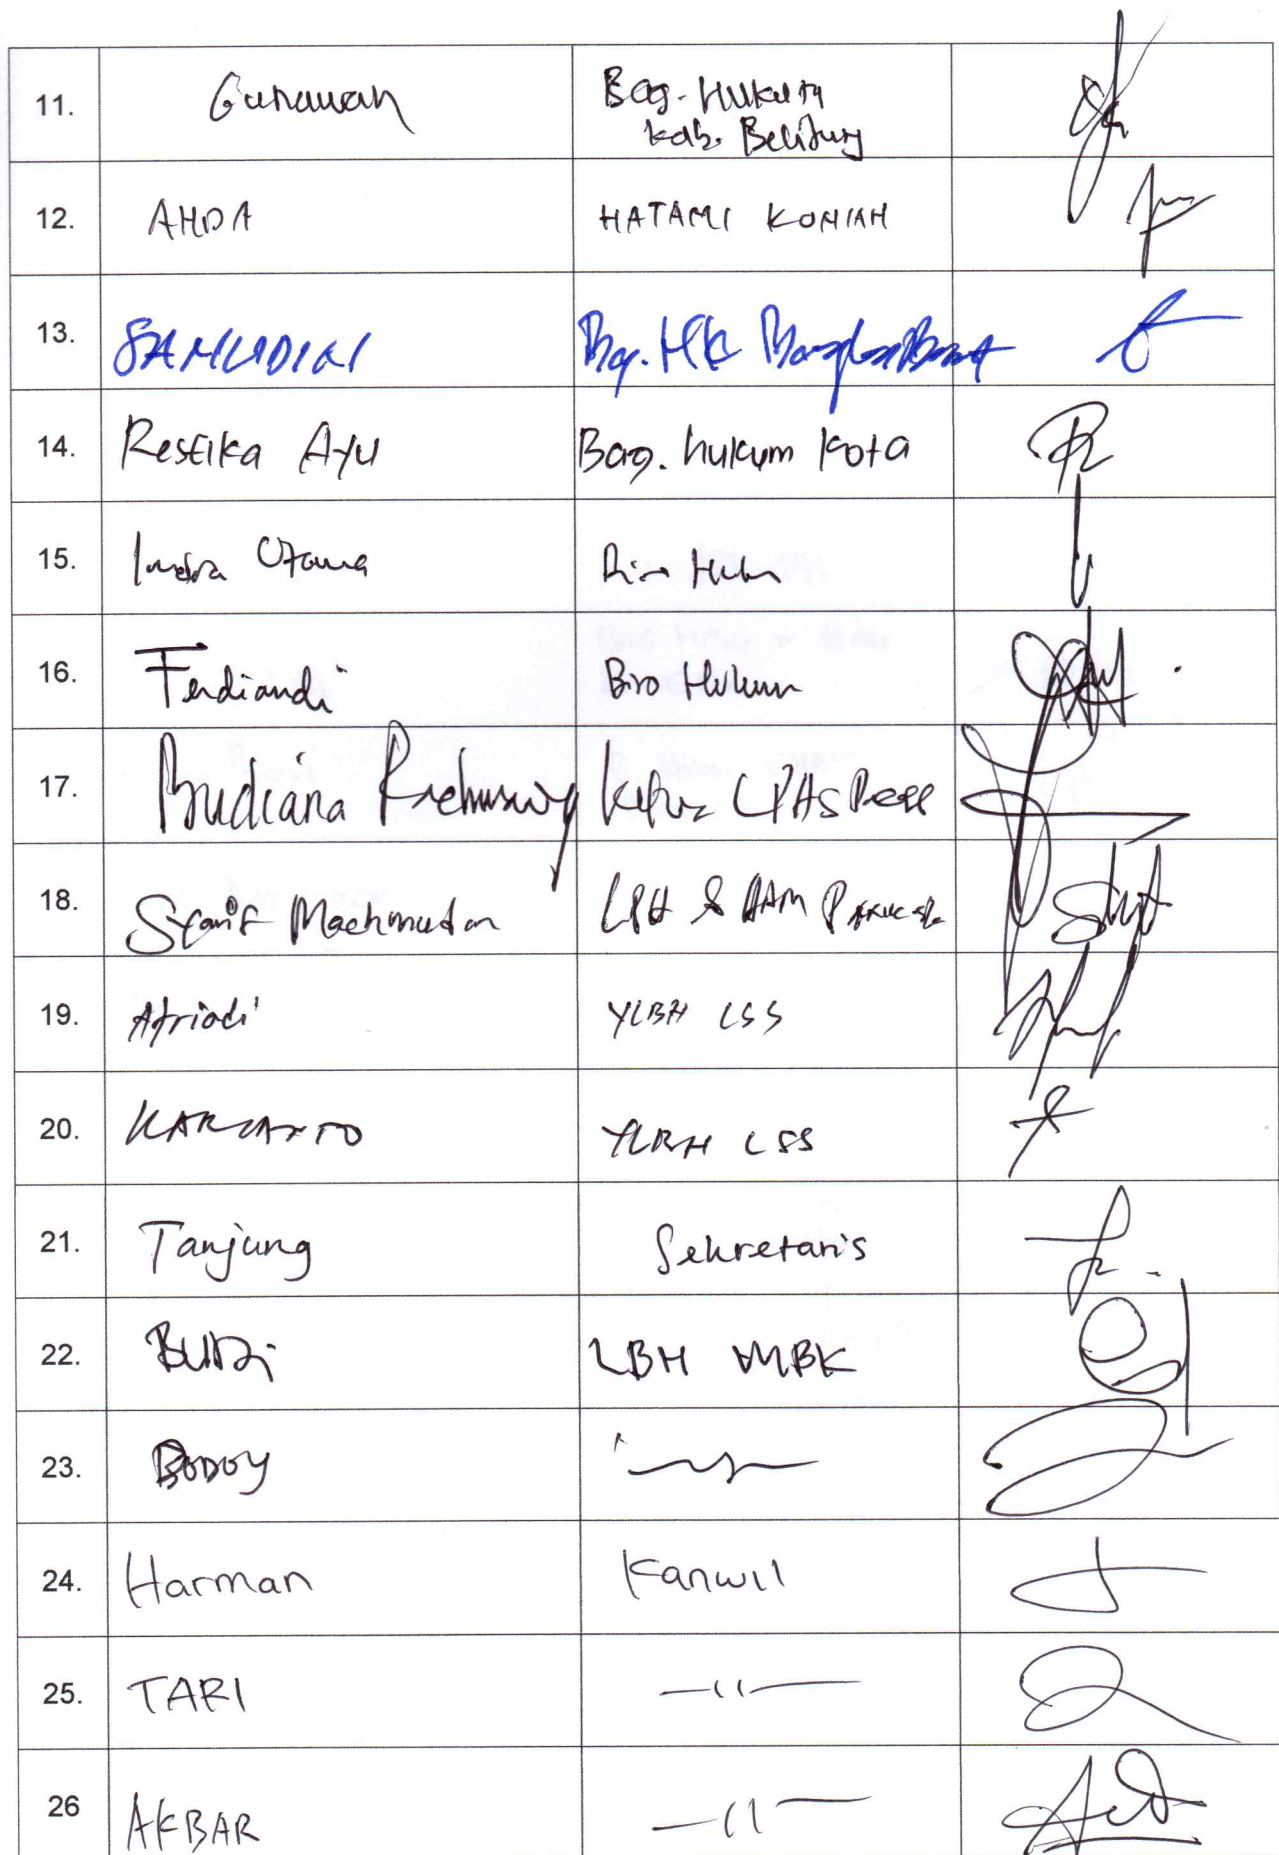 11. Gunawan Bag. Hukum
Kab. Belitung
12. AHDA HATAMI KONIAH
13. SAMUDIN Bag. HK Bangka Barat
14. Restika Ayu Bag. hukum Kota
15. Indra Utama Hukum
16. Ferdiandi Biro Hukum
17. Budiana Ketua
18. Syarif Machmudin & HAM
19. Afriadi YLBH LSS
20. KARYANTO YLBH LSS
21. Tanjung Sekretaris
22. BUDi LBH MBK
23. BODOY
24. Harman Kanwil
25. TARI —11—
26 AKBAR —11—